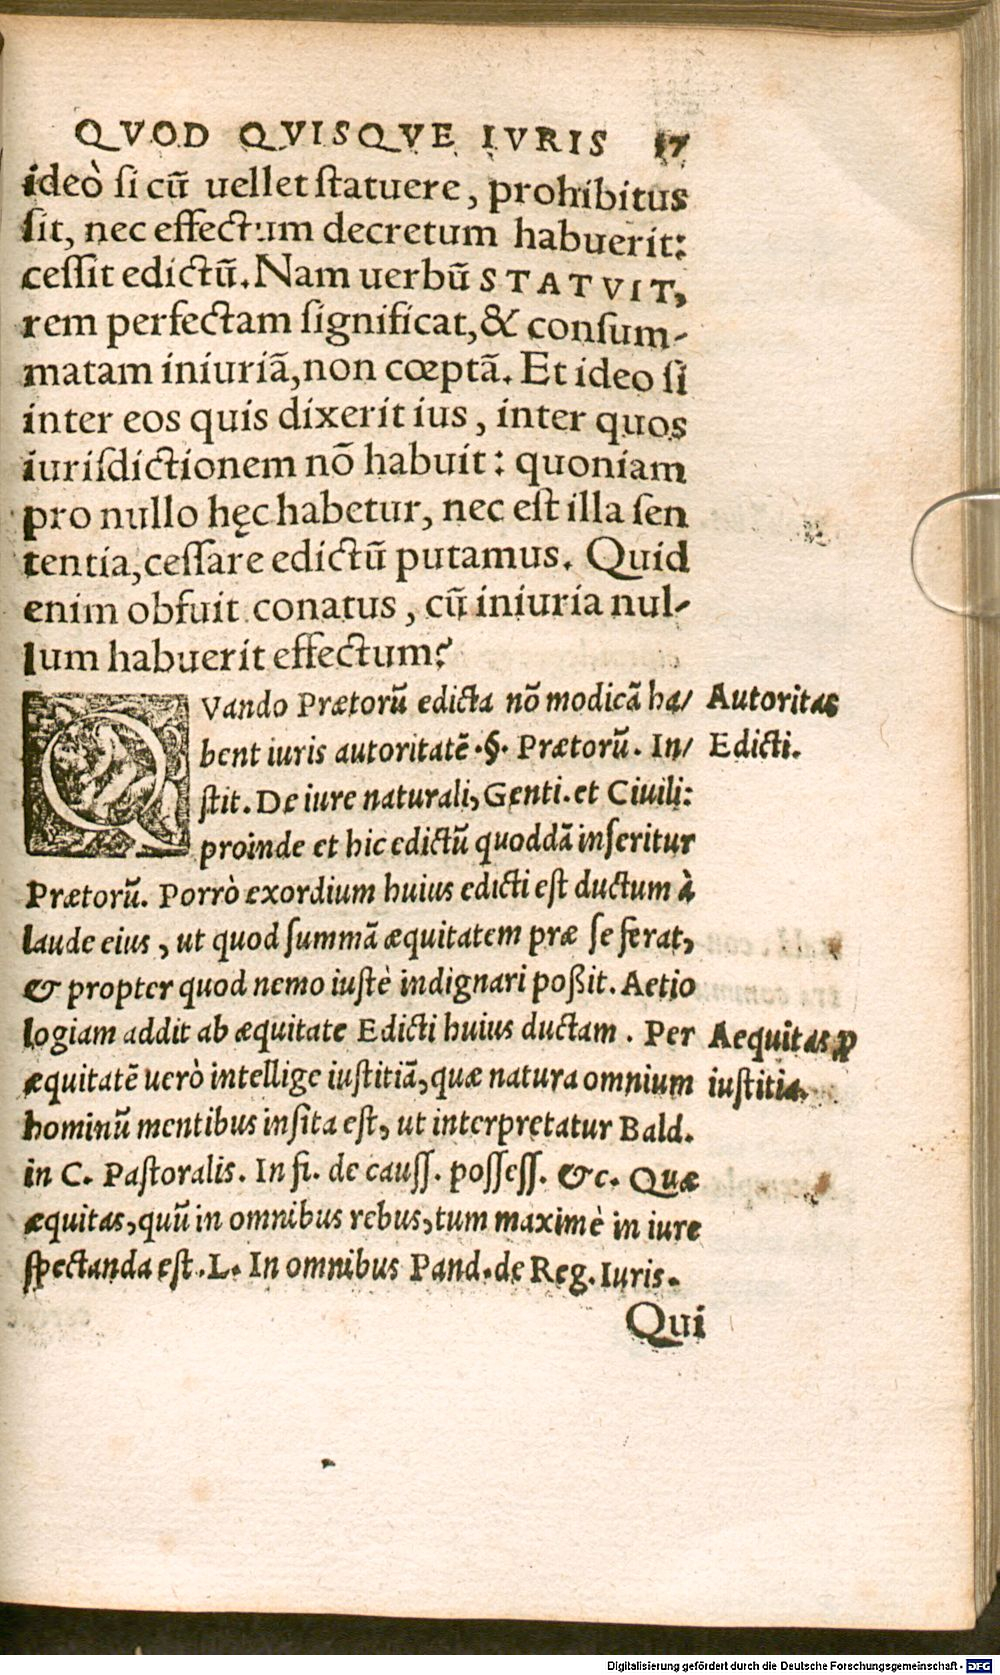 QVOD QVISQVE IVRIS 17
ideò ſi cũ uellet ſtatuere, prohibitus
ſit, nec effectum decretum habuerit:
ceſſit edictũ. Nam uerbũ STATVIT,
rem perfectam ſignificat, & conſum-
matam iniuriã, non cœptã. Et ideo ſi
inter eos quis dixerit ius, inter quos
iuriſdictionem nõ habuit: quoniam
pro nullo hęc habetur, nec eſt illa ſen
tentia, ceſſare edictũ putamus. Quid
enim obfuit conatus, cũ iniuria nul-
lum habuerit effectum?
QVando Prætorũ edicta nõ modicã ha/
bent iuris autoritatẽ .§. Prætorũ. In/
ſtit. De iure naturali, Genti. et Ciuili:
proinde et hic edictũ quoddã inſeritur
Prætorũ. Porrò exordium huius edicti eſt ductum à
laude eius, ut quod ſummã æquitatem præ ſe ferat,
& propter quod nemo iuſtè indignari poßit. Aetio
logiam addit ab æquitate Edicti huius ductam. Per
æquitatẽ uerò intellige iuſtitiã, quæ natura omnium
hominũ mentibus inſita eſt, ut interpretatur Bald.
in C. Paſtoralis. In fi. de cauſſ. poſſeſſ. &c. Quæ
æquitas, quũ in omnibus rebus, tum maximè in iure
ſpectanda eſt. L. In omnibus Pand. de Reg. Iuris.
Qui
Autoritas
Edicti.
Aequitas ꝓ
iuſtitia.
Digitalisierung gefördert durch die Deutsche Forschungsgemeinschaft - DFG